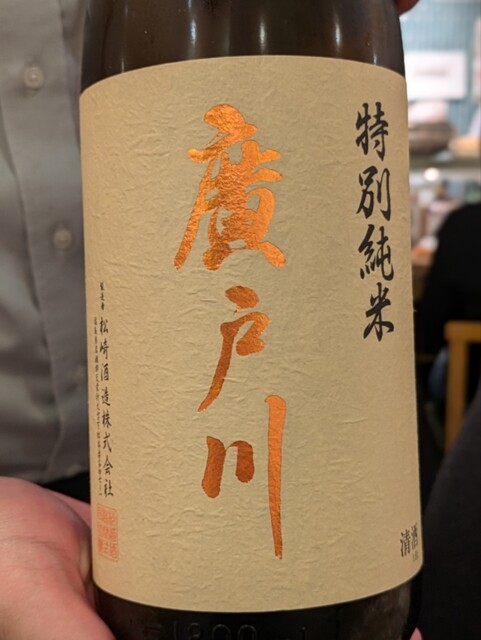 特別純米
廣戸川
製造者
松崎酒造株式会社
清酒
1800